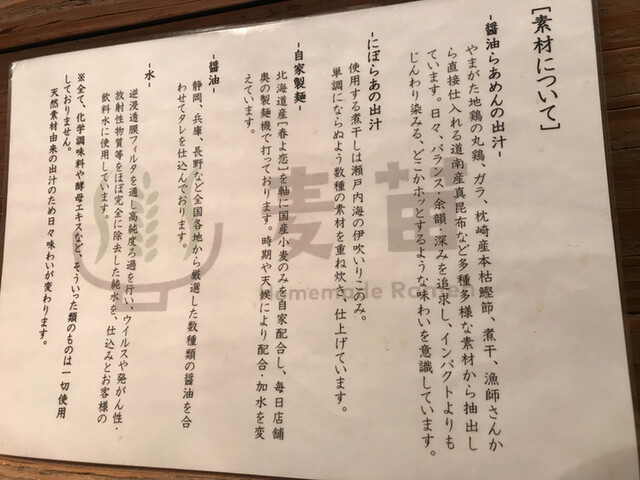 ［素材について］
-醤油らあめんの出汁-
やまがた地鶏の丸鶏、ガラ、枕崎産本枯鰹節、煮干、漁師さんか
ら直接仕入れる道南産真昆布など多種多様な素材から抽出し
ています。日々、バランス・余韻・深みを追求し、インパクトよりも
じんわり染みる、どこかホッとするような味わいを意識しています。
-にぼらあの出汁-
使用する煮干しは瀬戸内海の伊吹いりこのみ。
単調にならぬよう数種の素材を重ね炊き、仕上げています。
-自家製麺-
北海道産［春よ恋］を軸に国産小麦のみを自家配合し、毎日店舗
奥の製麺機で打っております。時期や天候により配合・加水を変
えています。
-醤油-
静岡、兵庫、長野など全国各地から厳選した数種類の醤油を合
わせてタレを仕込んでおります。
-水-
逆浸透膜フィルタを通し高純度ろ過を行い、ウイルスや発がん性・
放射性物質等をほぼ完全に除去した純水を、仕込みとお客様の
飲料水に使用しています。
※全て、化学調味料や酵母エキスなど、そういった類のものは一切使用
しておりません。
天然素材由来の出汁のため日々味わいが変わります。
麦苗
Homemade Ramen